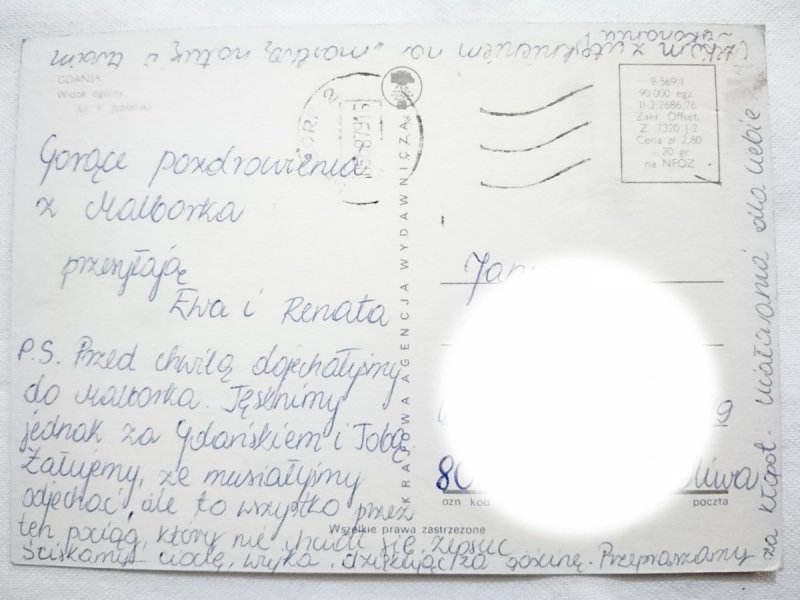 GDAŃSK
Widok ogólny
fot. K. Jabłoński
9-569/I
90 000 egz.
II-3/2686/76
Zakł. Offset.
Z. 7320 J-2
Cena zł 2,80
20 gr
na NFOZ
KRAJOWA AGENCJA WYDAWNICZA
Gorące pozdrowienia
z Malborka
przesyłają
Ewa i Renata
P.S. Przed chwilą dojechałyśmy
do Malborka. Tęsknimy
jednak za Gdańskiem i Tobą.
Żałujemy, że musiałyśmy
odjechać, ale to wszystko przez
ten pociąg, który nie się zepsuć
Ściskamy ciocię, wujka, dziękując za gościnę. Przepraszamy
za kłopot. dla Ciebie
z utęsknieniem na
80
Oliwa
ozn. kod
poczta
Wszelkie prawa zastrzeżone